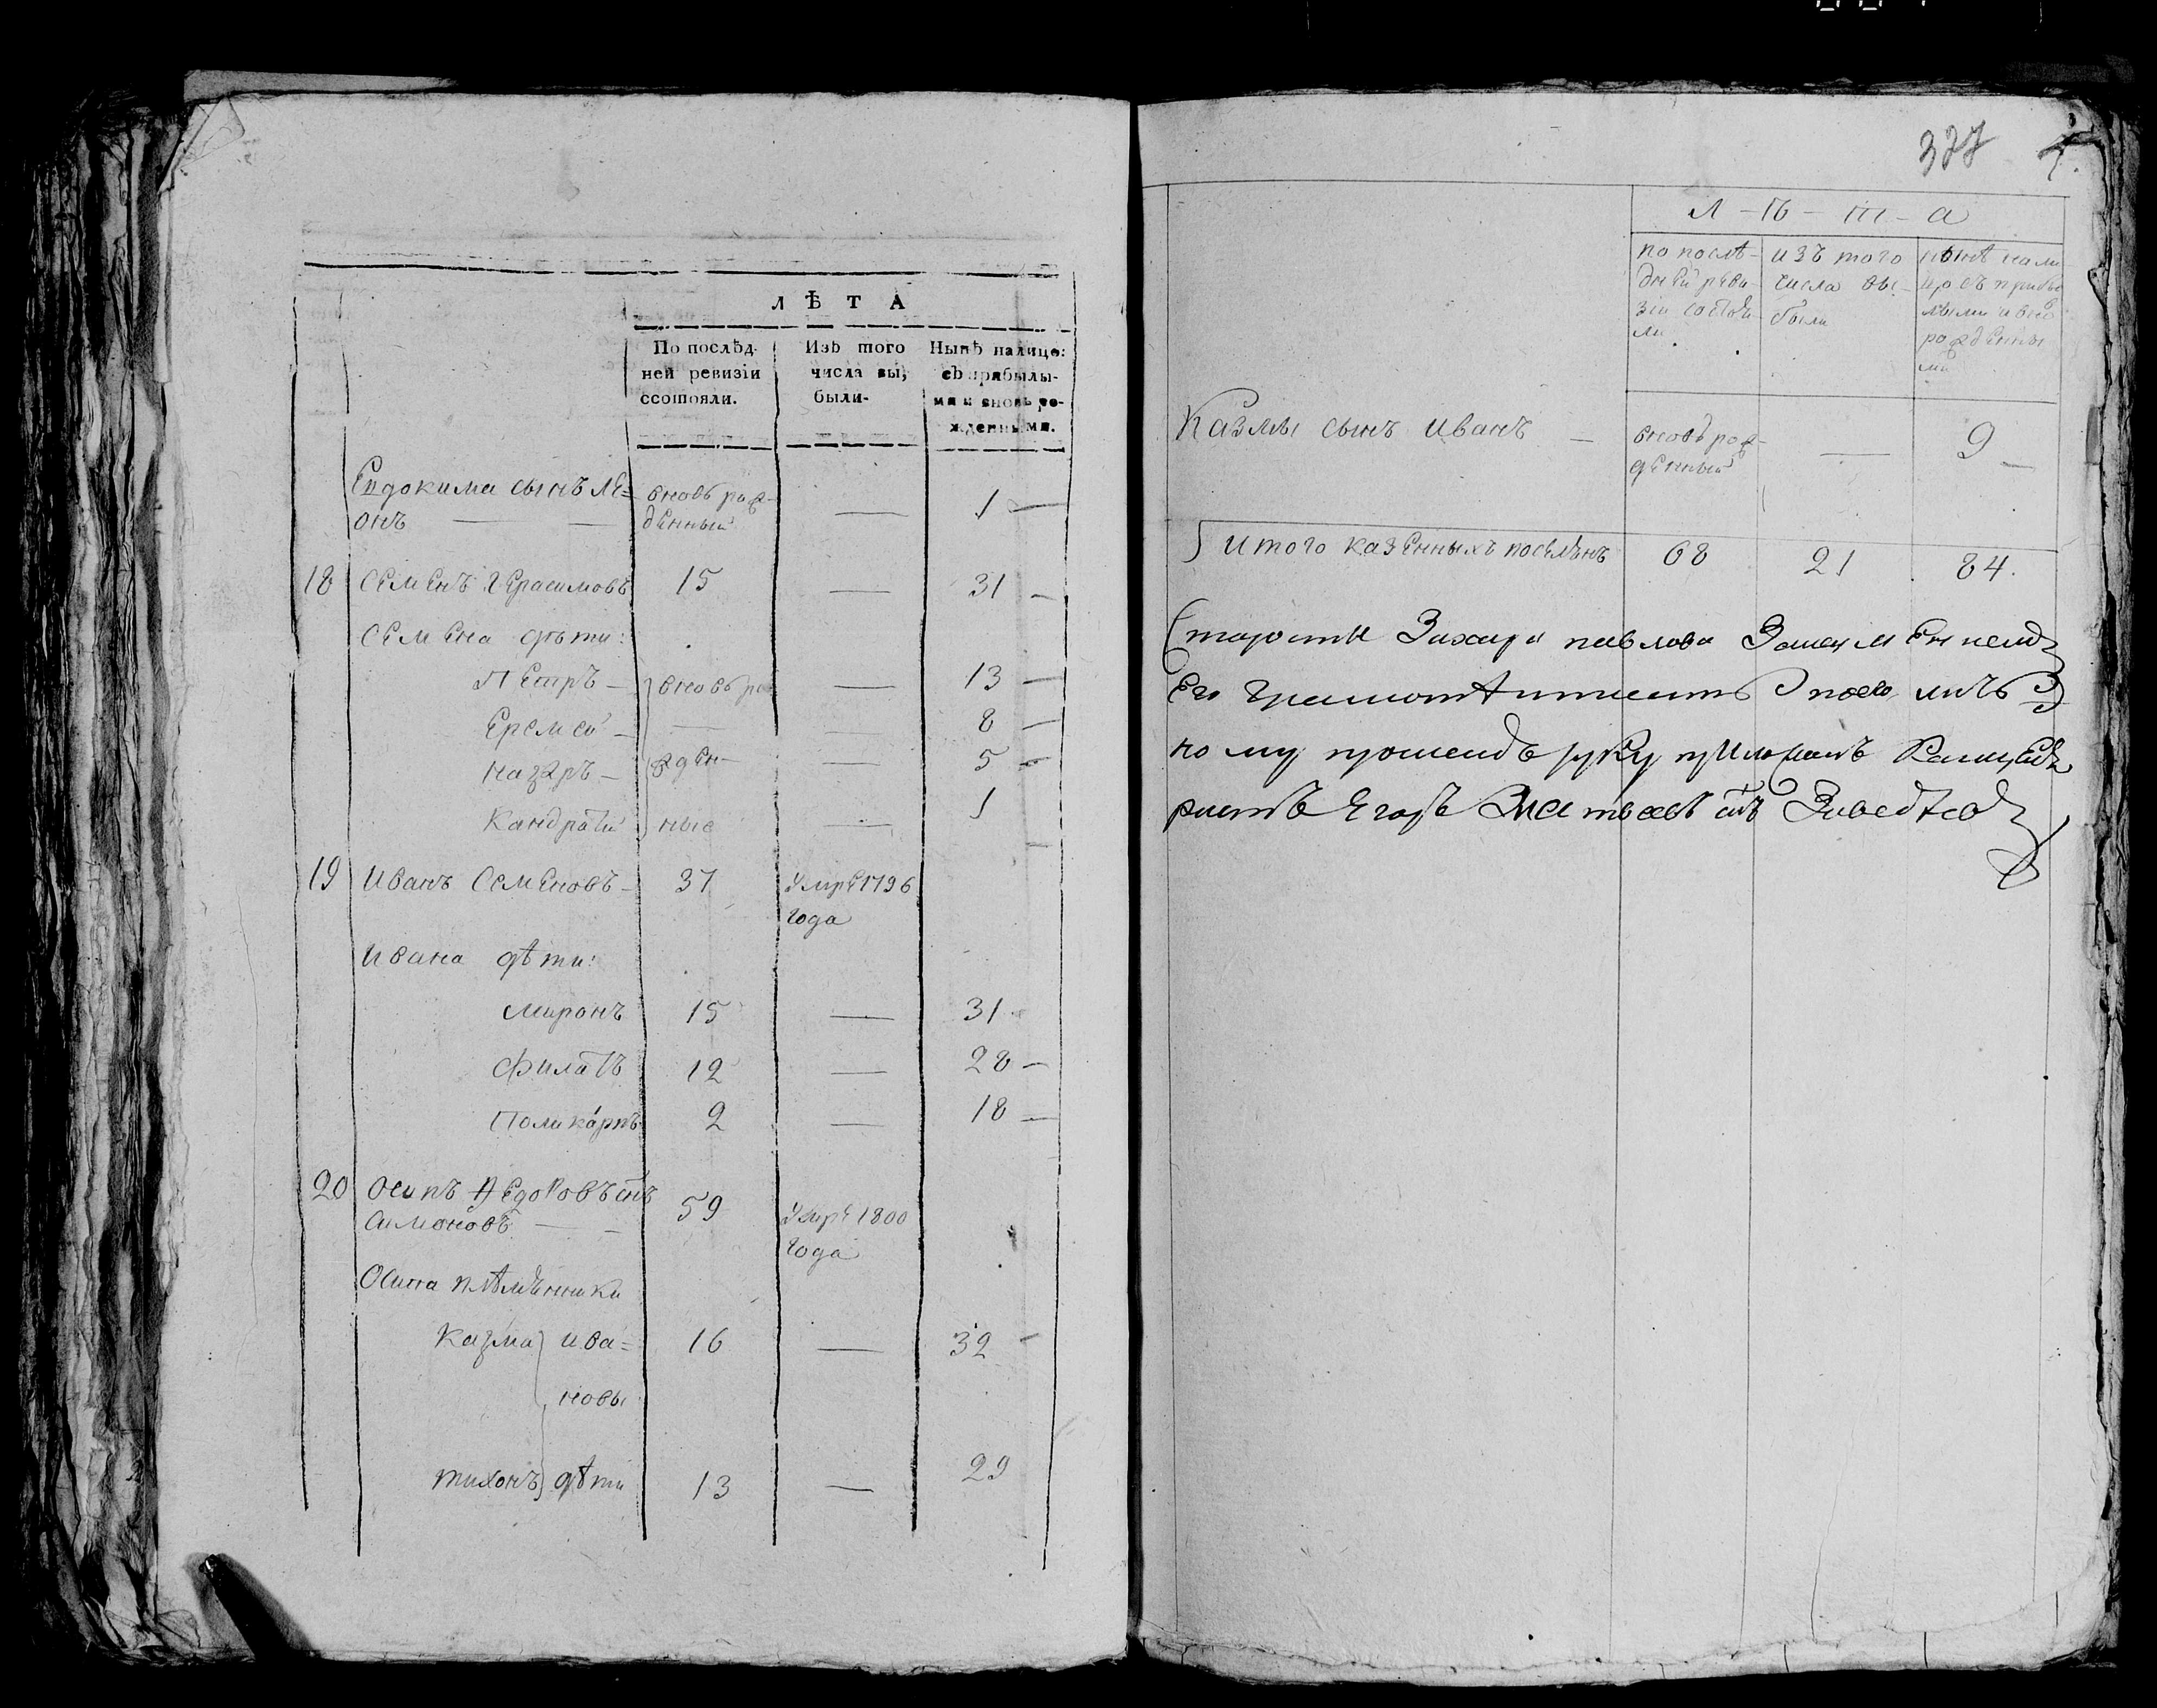 ЛѢТА
По послѣд-
ней ревизіи
ссотояли.
Изъ того
числа вы,
были-
Нынѣ налицо:
съ прибылы-
ми и вновь ро-
жденными.
Евдокима сынъ Ле=
онъ — вновь рож-
денный — 1
18 Семенъ Герасимовъ 15 — 31
Семена дѣти:
Петръ — вновь ро — 13
Еремей — 8
Назаръ — жден- — 5
Кандратий ные — 1
19 Иванъ Семеновъ 37 Умре 1796
года
Ивана дѣти:
Миронъ 15 — 31
Филатъ 12 — 28
Поликарпъ 2 — 18
20 Осипъ Федоровъ сынъ
Симоновъ 59 Умре 1800
года
Осипа племѣнники
Казма ива= 16 — 32
новы
Тихонъ дѣти 13 — 29
327
Л-ѣ-т-а
по послѣ-
дней реви-
зіи состоя-
ли
изъ того
числа вы-
были
нынѣ нали-
цо съ прибы
лыми и вно
рожденны
ми
Казмы сынъ Иванъ — вновь рож-
денный — 9
Итого казенныхъ поселянъ 68 21 84.
Старосты Захара Павлова
Его грамоте
руку приложилъ Канцеля
ристъ Егоръ